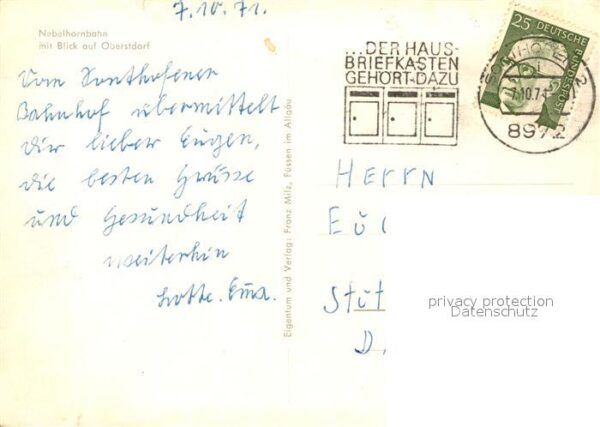 7.10.71.
Nebelhornbahn
mit Blick auf Oberstdorf
Vom Sonthofener
Bahnhof übermittelt
dir lieber Eugen,
die besten Grüsse
und Gesundheit
weiterhin
Lotte. Ema.
Eigentum und Verlag: Franz Milz, Füssen im Allgäu
...DER HAUS-
BRIEFKASTEN
GEHÖRT DAZU
25 DEUTSCHE
BUNDESPOST
7.10.71
8972
HERRN
privacy protection
Datenschutz